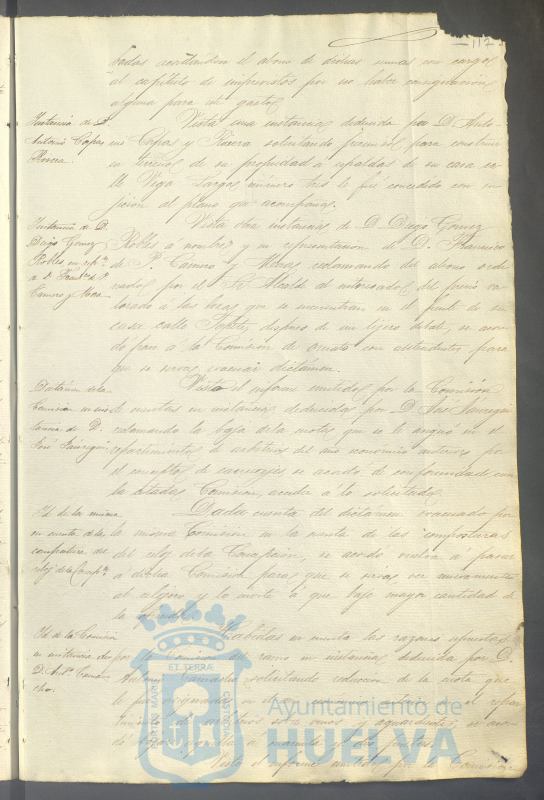 117
badas acordandose el abono de dichas sumas con cargo
al capitulo de imprevistos por no haber consignacion
alguna para este gasto.
Instancia de D.
Antonio Capas
Rivera
Vista una instancia deducida por D. Anto-
nio Capas y Rivera solicitando para construir
en terreno de su propiedad a espaldas de su casa ca-
lle Vega Larga, número tres le fué concedido con su-
jecion al plano que acompaña.
Instancia de D.
Diego Gomez
Robles en
a D. Fran.co de P.
Camero y
Vista otra instancia de D. Diego Gomez
Robles a nombre y en representacion de D. Francisco
de P. Camero y reclamando del abono orde-
nado por el Sr. Alcalde al del precio va-
lorado á las que se encuentran en el frente de su
casa calle despues de un ligero debate, se acor-
dó pase a la Comision de Ornato con antecedentes para
que se sirva evacuar dictámen.
Dictámen de la
Comision en ins-
tancia de D.
José Jáuregui
Vista el informe emitido por la Comision
de en instancia deducida por D. José Jáuregui
reclamando la baja de la cuota que se le asignó en el
repartimiento de arbitrios del año economico anterior por
el concepto de carruajes se acordó de conformidad con
la citada Comision, acceder á lo solicitado.
Id. de la misma
en cuenta de la
compostura del
reloj de la Concep.n
Dada cuenta del dictámen evacuado por
la misma Comision en la cuenta de las composturas
del reloj de la Concepcion, se acordó vuelva á pasar
á dicha Comision para que se sirva ver nuevamente
al relojero y le invite á que baje mayor cantidad de
la
Id. de la Comision
en instancia de
D. Ant.o Cama-
cho.
Habidas en cuenta las razones expuestas
por la Comision del ramo en instancia deducida por D.
Antonio Camacho solicitando reduccion de la cuota que
le fué asignada en el repar-
timiento de arbitrios sobre vinos y aguardientes, se acor-
dó
Visto el informe emitido por la Comision
ET TERRÆ
PORTUS MARIS
CUSTODIA
Ayuntamiento de
HUELVA